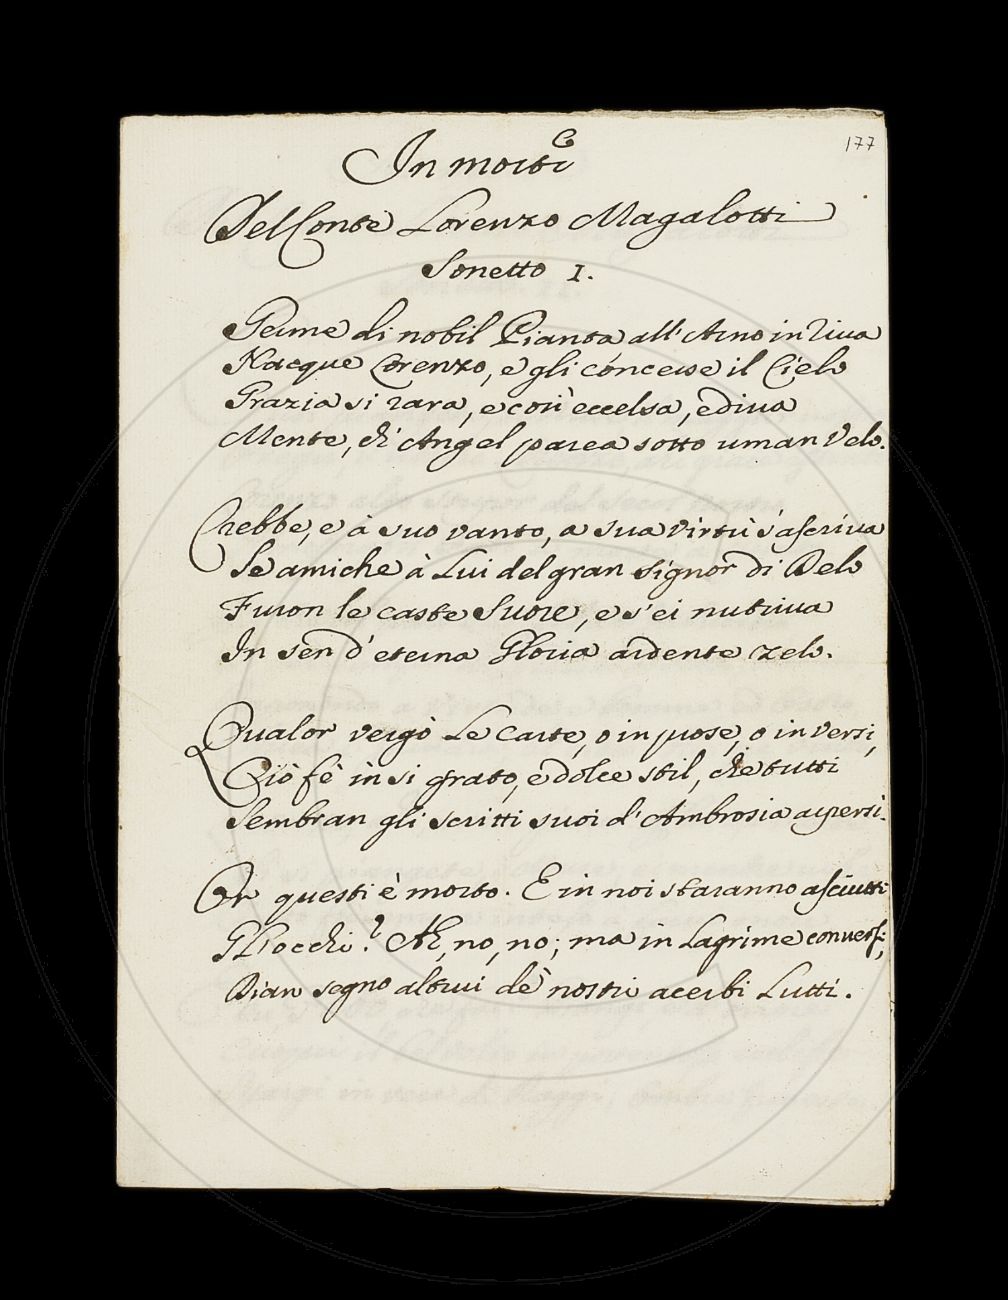 177
In morte
Del Conte Lorenzo Magalotti
Sonetto 1.
Germe di nobil Pianta all' Arno in riva
Nacque Lorenzo, e gli concesse il Cielo
Grazia si rara, e così eccelsa, e diva
Mente, ch' Angel parea sotto uman Velo.
Crebbe, e à suo vanto, a sua virtù s'ascriva
Se amiche à Lui del gran signor di Delo
Furon le caste Suore, e s'ei nutriva
In sen d' eterna Gloria ardente zelo.
Qualor vergò Le Carte, o in prose, o in versi,
Ciò fè in si grato, e dolce stil, che tutti
Sembran gli scritti suoi d' Ambrosia aspersi.
Or questi è morto. E in noi staranno asciutti
Gl' occhi? Ah, no, no; ma in Lagrime conversi,
Dian segno altrui de' nostri acerbi Lutti.